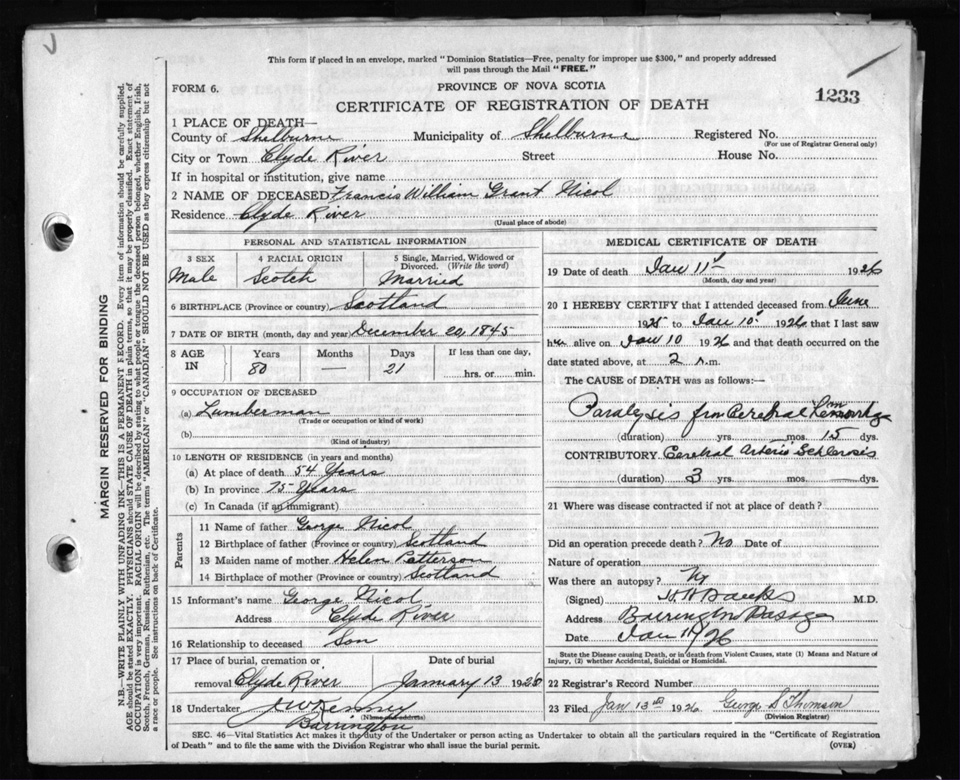 This form if placed in an envelope, marked "Dominion Statistics—Free, penalty for improper use $300," and properly addressed
will pass through the Mail "FREE."
FORM 6.
PROVINCE OF NOVA SCOTIA
CERTIFICATE OF REGISTRATION OF DEATH
1233
1 PLACE OF DEATH—
County of Shelburne Municipality of Shelburne Registered No.
(For use of Registrar General only)
City or Town Clyde River Street House No.
If in hospital or institution, give name
2 NAME OF DECEASED Francis William Grant Nicol
Residence Clyde River
(Usual place of abode)
PERSONAL AND STATISTICAL INFORMATION
3 SEX 4 RACIAL ORIGIN 5 Single, Married, Widowed or
Divorced. (Write the word)
Male Scotch Married
6 BIRTHPLACE (Province or country) Scotland
7 DATE OF BIRTH (month, day and year) December 20, 1845
8 AGE IN Years Months Days If less than one day,
80 — 21 hrs. or min.
9 OCCUPATION OF DECEASED
(a) Lumberman
(Trade or occupation or kind of work)
(b)
(Kind of industry)
10 LENGTH OF RESIDENCE (in years and months)
(a) At place of death 54 Years
(b) In province 75 Years
(c) In Canada (if an immigrant)
Parents
11 Name of father George Nicol
12 Birthplace of father (Province or country) Scotland
13 Maiden name of mother Helen Patterson
14 Birthplace of mother (Province or country) Scotland
15 Informant's name George Nicol
Address Clyde River
16 Relationship to deceased Son
17 Place of burial, cremation or Date of burial
removal Clyde River January 13 1926
18 Undertaker J W Kenney
(Name and address)
Barrington
MEDICAL CERTIFICATE OF DEATH
19 Date of death Jan 11 1926
(Month, day and year)
20 I HEREBY CERTIFY that I attended deceased from June
1925 to Jan 10 1926 that I last saw
him alive on Jan 10 1926 and that death occurred on the
date stated above, at 2 .m.
The CAUSE OF DEATH was as follows:—
Paralysis frm Cerebral
(duration) yrs. mos. 15 dys.
CONTRIBUTORY Cerebral Arterio Schlerosis
(duration) 3 yrs. mos. dys.
21 Where was disease contracted if not at place of death?
Did an operation precede death? No Date of
Nature of operation
Was there an autopsy?
(Signed) Banks M.D.
Address Barrington Passage
Date Jan 11/26
State the Disease causing Death, or in death from Violent Causes, state (1) Means and Nature of
Injury, (2) whether Accidental, Suicidal or Homicidal.
22 Registrar's Record Number
23 Filed Jan 13th 1926 George S Thomson
(Division Registrar)
SEC. 46—Vital Statistics Act makes it the duty of the Undertaker or person acting as Undertaker to obtain all the particulars required in the "Certificate of Registration
of Death" and to file the same with the Division Registrar who shall issue the burial permit.
(OVER)
MARGIN RESERVED FOR BINDING
N.B.—WRITE PLAINLY WITH UNFADING INK—THIS IS A PERMANENT RECORD. Every item of information should be carefully supplied.
AGE should be stated EXACTLY. PHYSICIANS should STATE CAUSE OF DEATH in plain terms, so that it may be properly classified. Exact statement of
OCCUPATION is very important. RACIAL ORIGIN will be described by stating to what people or tongue the deceased person belonged, whether English, Irish,
Scotch, French, German, Russian, Ruthenian, etc. The terms "AMERICAN" or "CANADIAN" SHOULD NOT BE USED as they express citizenship but not
a race or people. See instructions on back of Certificate.